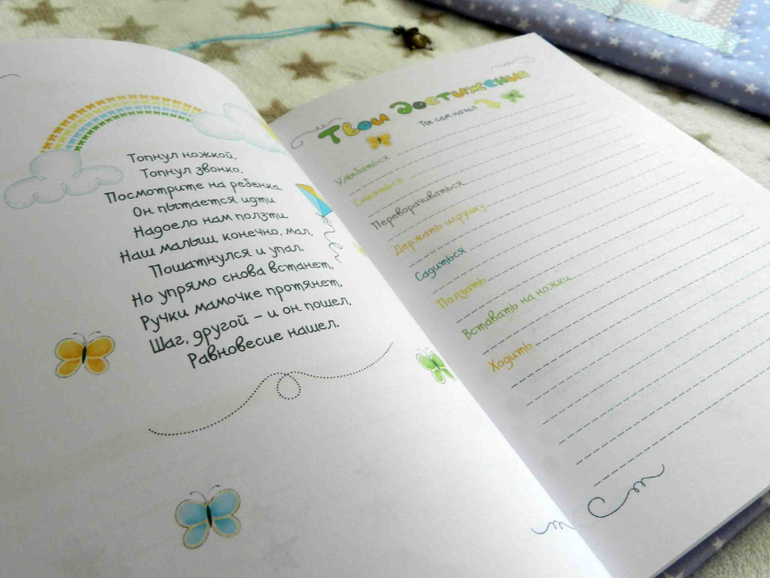 Топнул ножкой,
Топнул звонко,
Посмотрите на ребенка.
Он пытается идти
Надоело нам ползти.
Наш малыш, конечно, мал,
Пошатнулся и упал.
Но упрямо снова встанет,
Ручки мамочке протянет,
Шаг, другой – и он пошел,
Равновесие нашел.
Твои достижения
Ты сам начал
Улыбаться
Смеяться
Переворачиваться
Держать игрушку
Садиться
Ползать
Вставать на ножки
Ходить